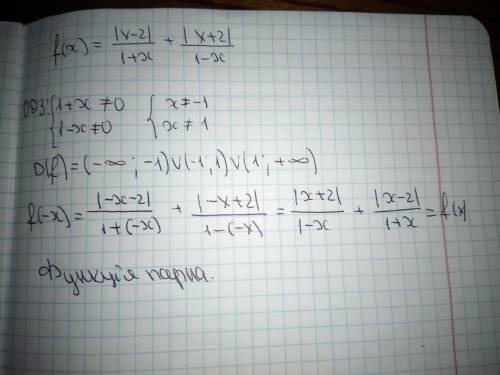 f(x) = |x-2|/(1+x) + |x+2|/(1-x)
ОДЗ: { 1+x ≠ 0 { x ≠ -1
{ 1-x ≠ 0 { x ≠ 1
D(f) = (-∞; -1) ∪ (-1; 1) ∪ (1; +∞)
f(-x) = |-x-2|/(1+(-x)) + |-x+2|/(1-(-x)) = |x+2|/(1-x) + |x-2|/(1+x) = f(x)
Функція парна.